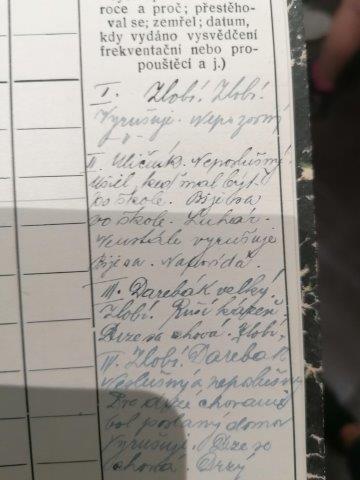 roce a proč; přestěho-
val se; zemřel; datum,
kdy vydáno vysvědčení
frekventační nebo pro-
pouštěcí a j.)
I. Zlobí! Zlobí!
Vyrušuje. Nepozorný
II. Uličník. Neposlušný.
Ušil keď mal byť
vo škole. Bije sa
vo škole. Luhár.
Neustále vyrušuje
Bije sa. Napovídá.
III. Darebák velký!
Zlobí! Ruší kázeň!
Drze sa chová. Zlobí!
IV. Zlobí! Darebák
Neslušný a neposlušný
Pro drzé chovanie
bol poslaný domov
Vyrušuje. Drze se
chová. Drzý